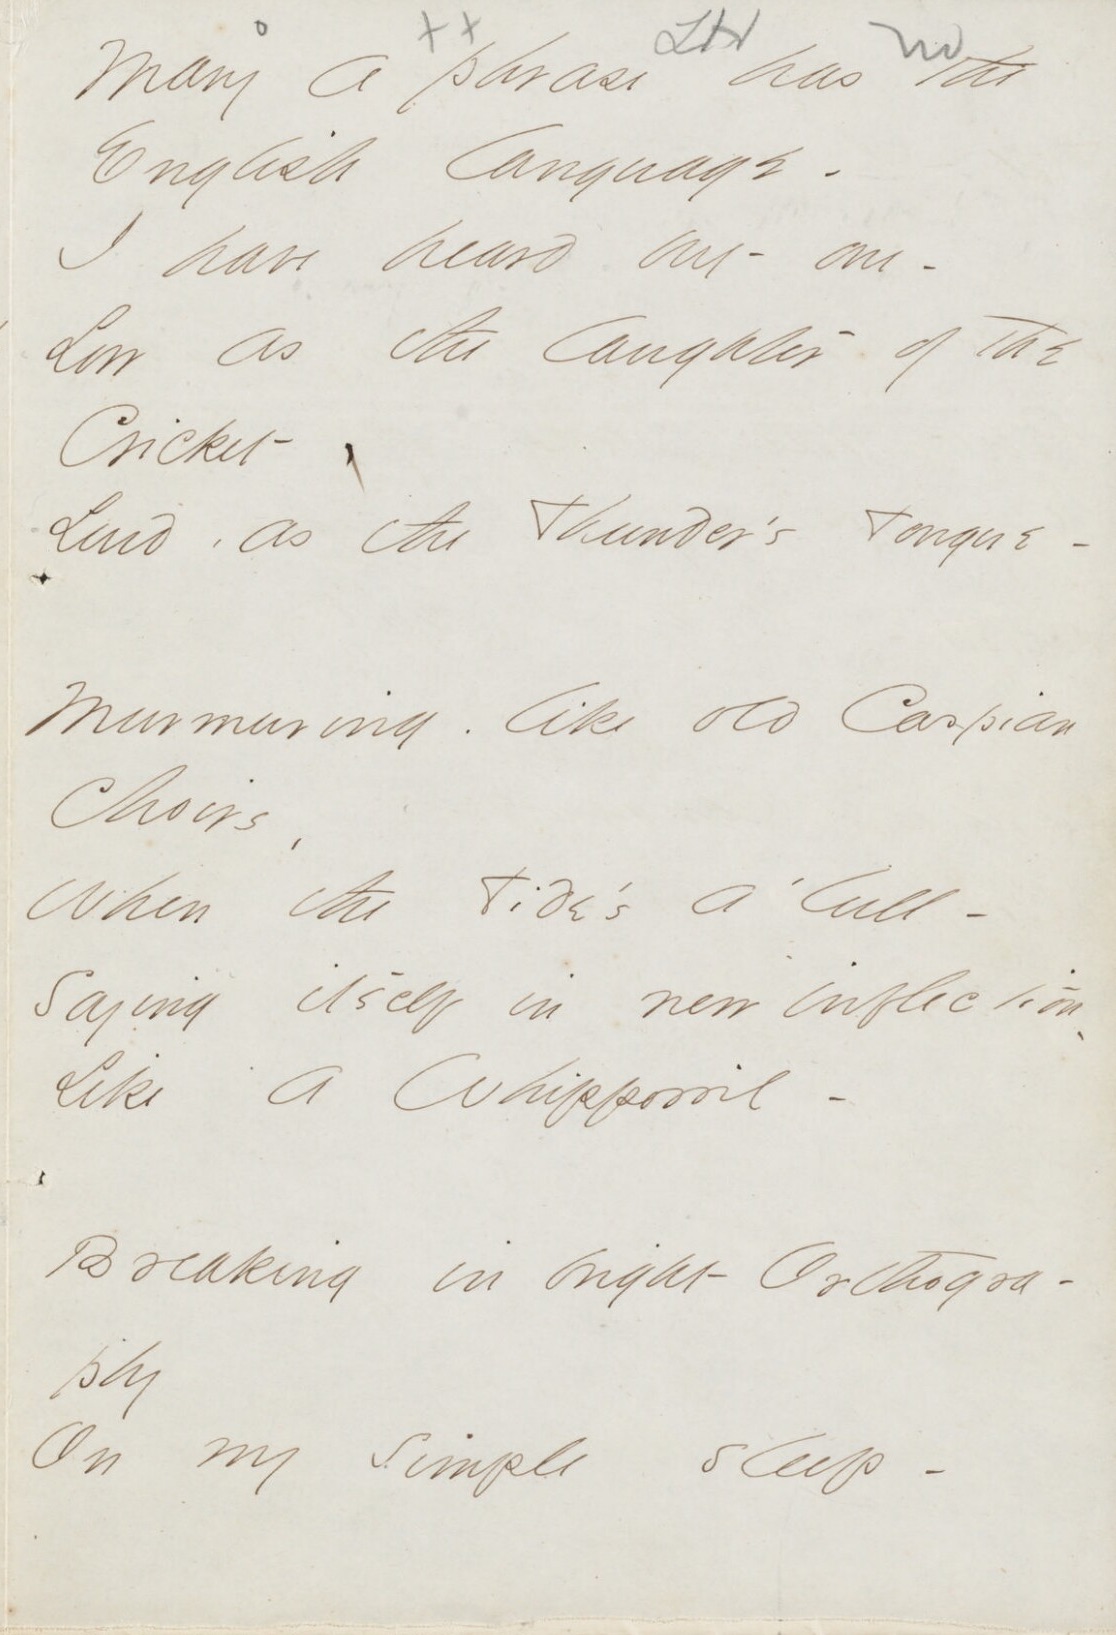 Many a phrase has the
English language -
I have heard but one -
Low as the laughter of the
Cricket,
Loud, as the Thunder's Tongue -
Murmuring, like old Caspian
Choirs,
When the Tide's a' lull -
Saying itself in new inflection,
Like a Whippowil -
Breaking in bright Orthogra-
phy
On my simple sleep -